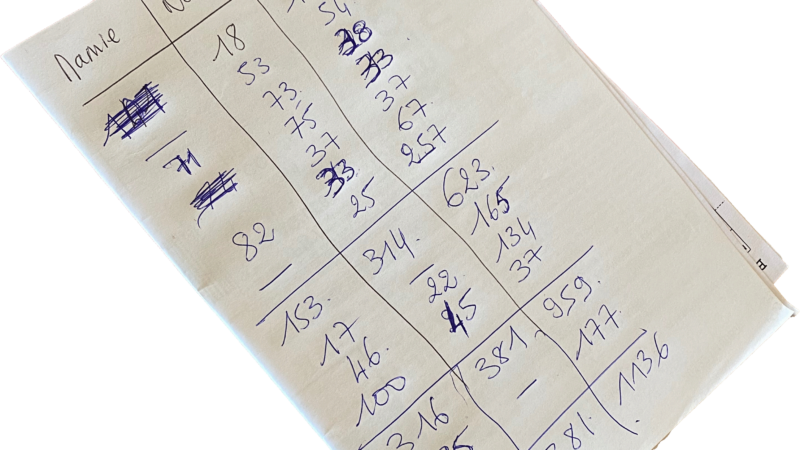 Namie
—
71
82
—
153.
17
46.
100
316
18
53
73.
75
37
33
25
314.
—
22
45
381
—
381.
54
38
33
37
67.
257
623.
165
134
37
959.
177.
1136